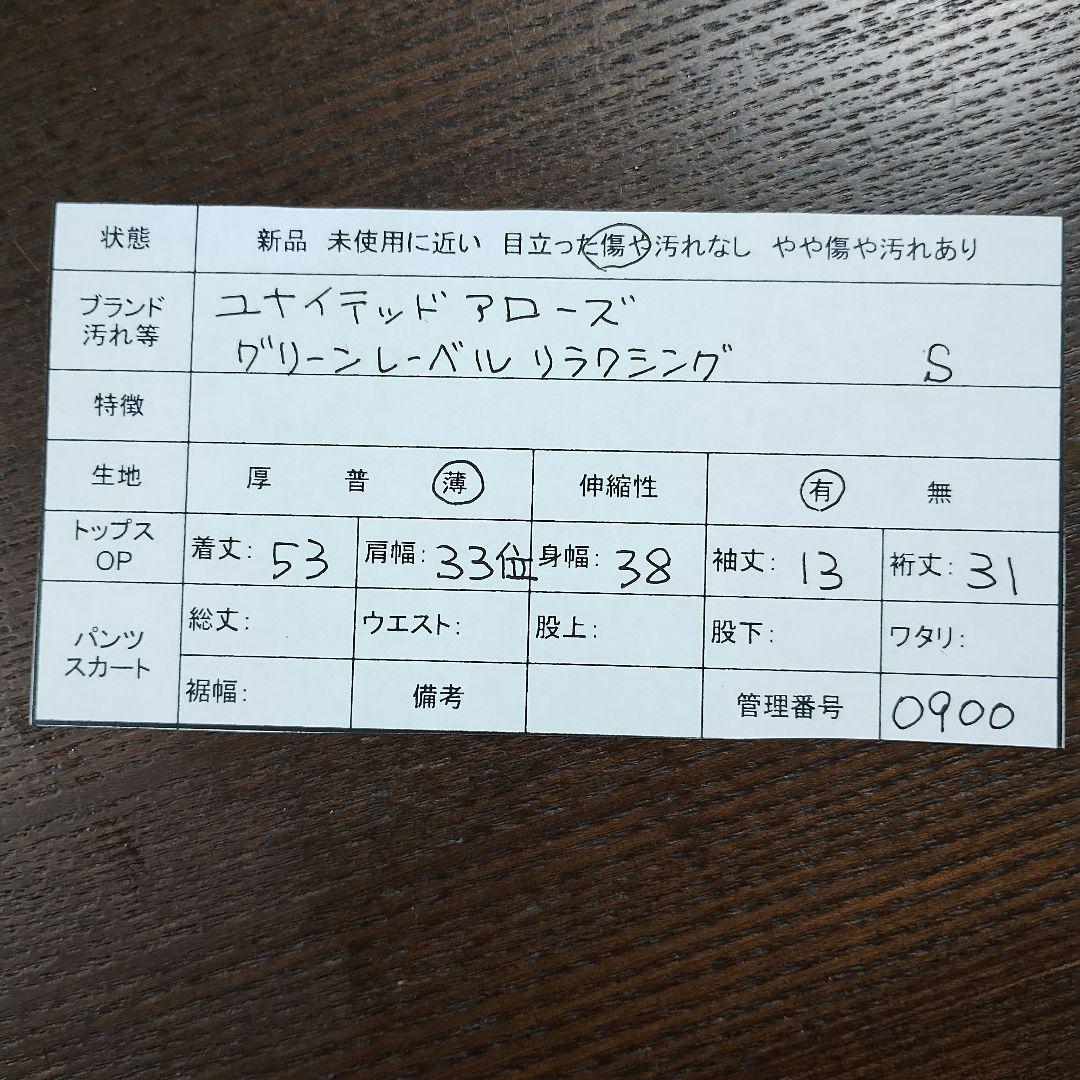 状態 新品 未使用に近い 目立った傷や汚れなし やや傷や汚れあり
ブランド 汚れ等 ユナイテッド アローズ
グリーンレーベル リラクシング S
特徴
生地 厚 普 薄 伸縮性 有 無
トップス OP 着丈: 53 肩幅: 33位 身幅: 38 袖丈: 13 裄丈: 31
パンツ スカート 総丈: ウエスト: 股上: 股下: ワタリ:
裾幅: 備考 管理番号 0900